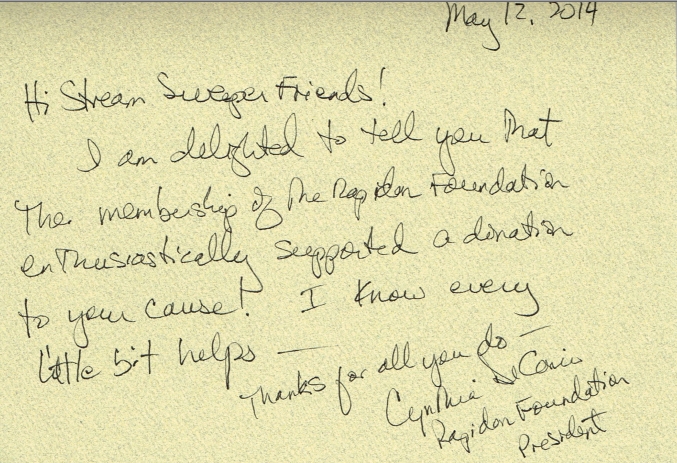 May 12, 2014
Hi Stream Sweeper Friends!
I am delighted to tell you that
The membership of The Rapidan Foundation
enthusiastically supported a donation
to your cause! I know every
little bit helps —
Thanks for all you do —
Cynthia
Rapidan Foundation
President